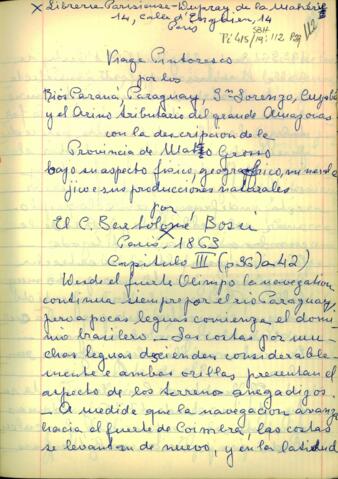 x Librerie Parisiense-Dupray de la Mahérie
14, calle d'Enghien, 14
Paris
SBH
Pi 415/19: 112 P39
112
Viage Pintoresco
por los
Rios Paraná, Paraguay, Sn Lorenzo, Cuyabá
y el Arino tributario del grande Amazonas
con la descripcion de la
Provincia de Mato Grosso
bajo su aspecto fisico, geografico, mineralo
jico e sus producciones naturales
por
El C. Bartolomé Bossi
Paris 1863
Capitulo III (p 36 a 42)
Desde el fuerte Olimpo la navegation
continua siempre por el rio Paraguay,
pero a pocas leguas comienza el domi
nio brasilero. - Las costas por mu-
chas leguas decienden considerable
mente e ambas orillas presentan el
aspecto de los terrenos anegadizos.
- A medide que la navegacion avanza
hacia el fuerte de Coimbra, las costas
se levantam de nuevo, y en la latitud